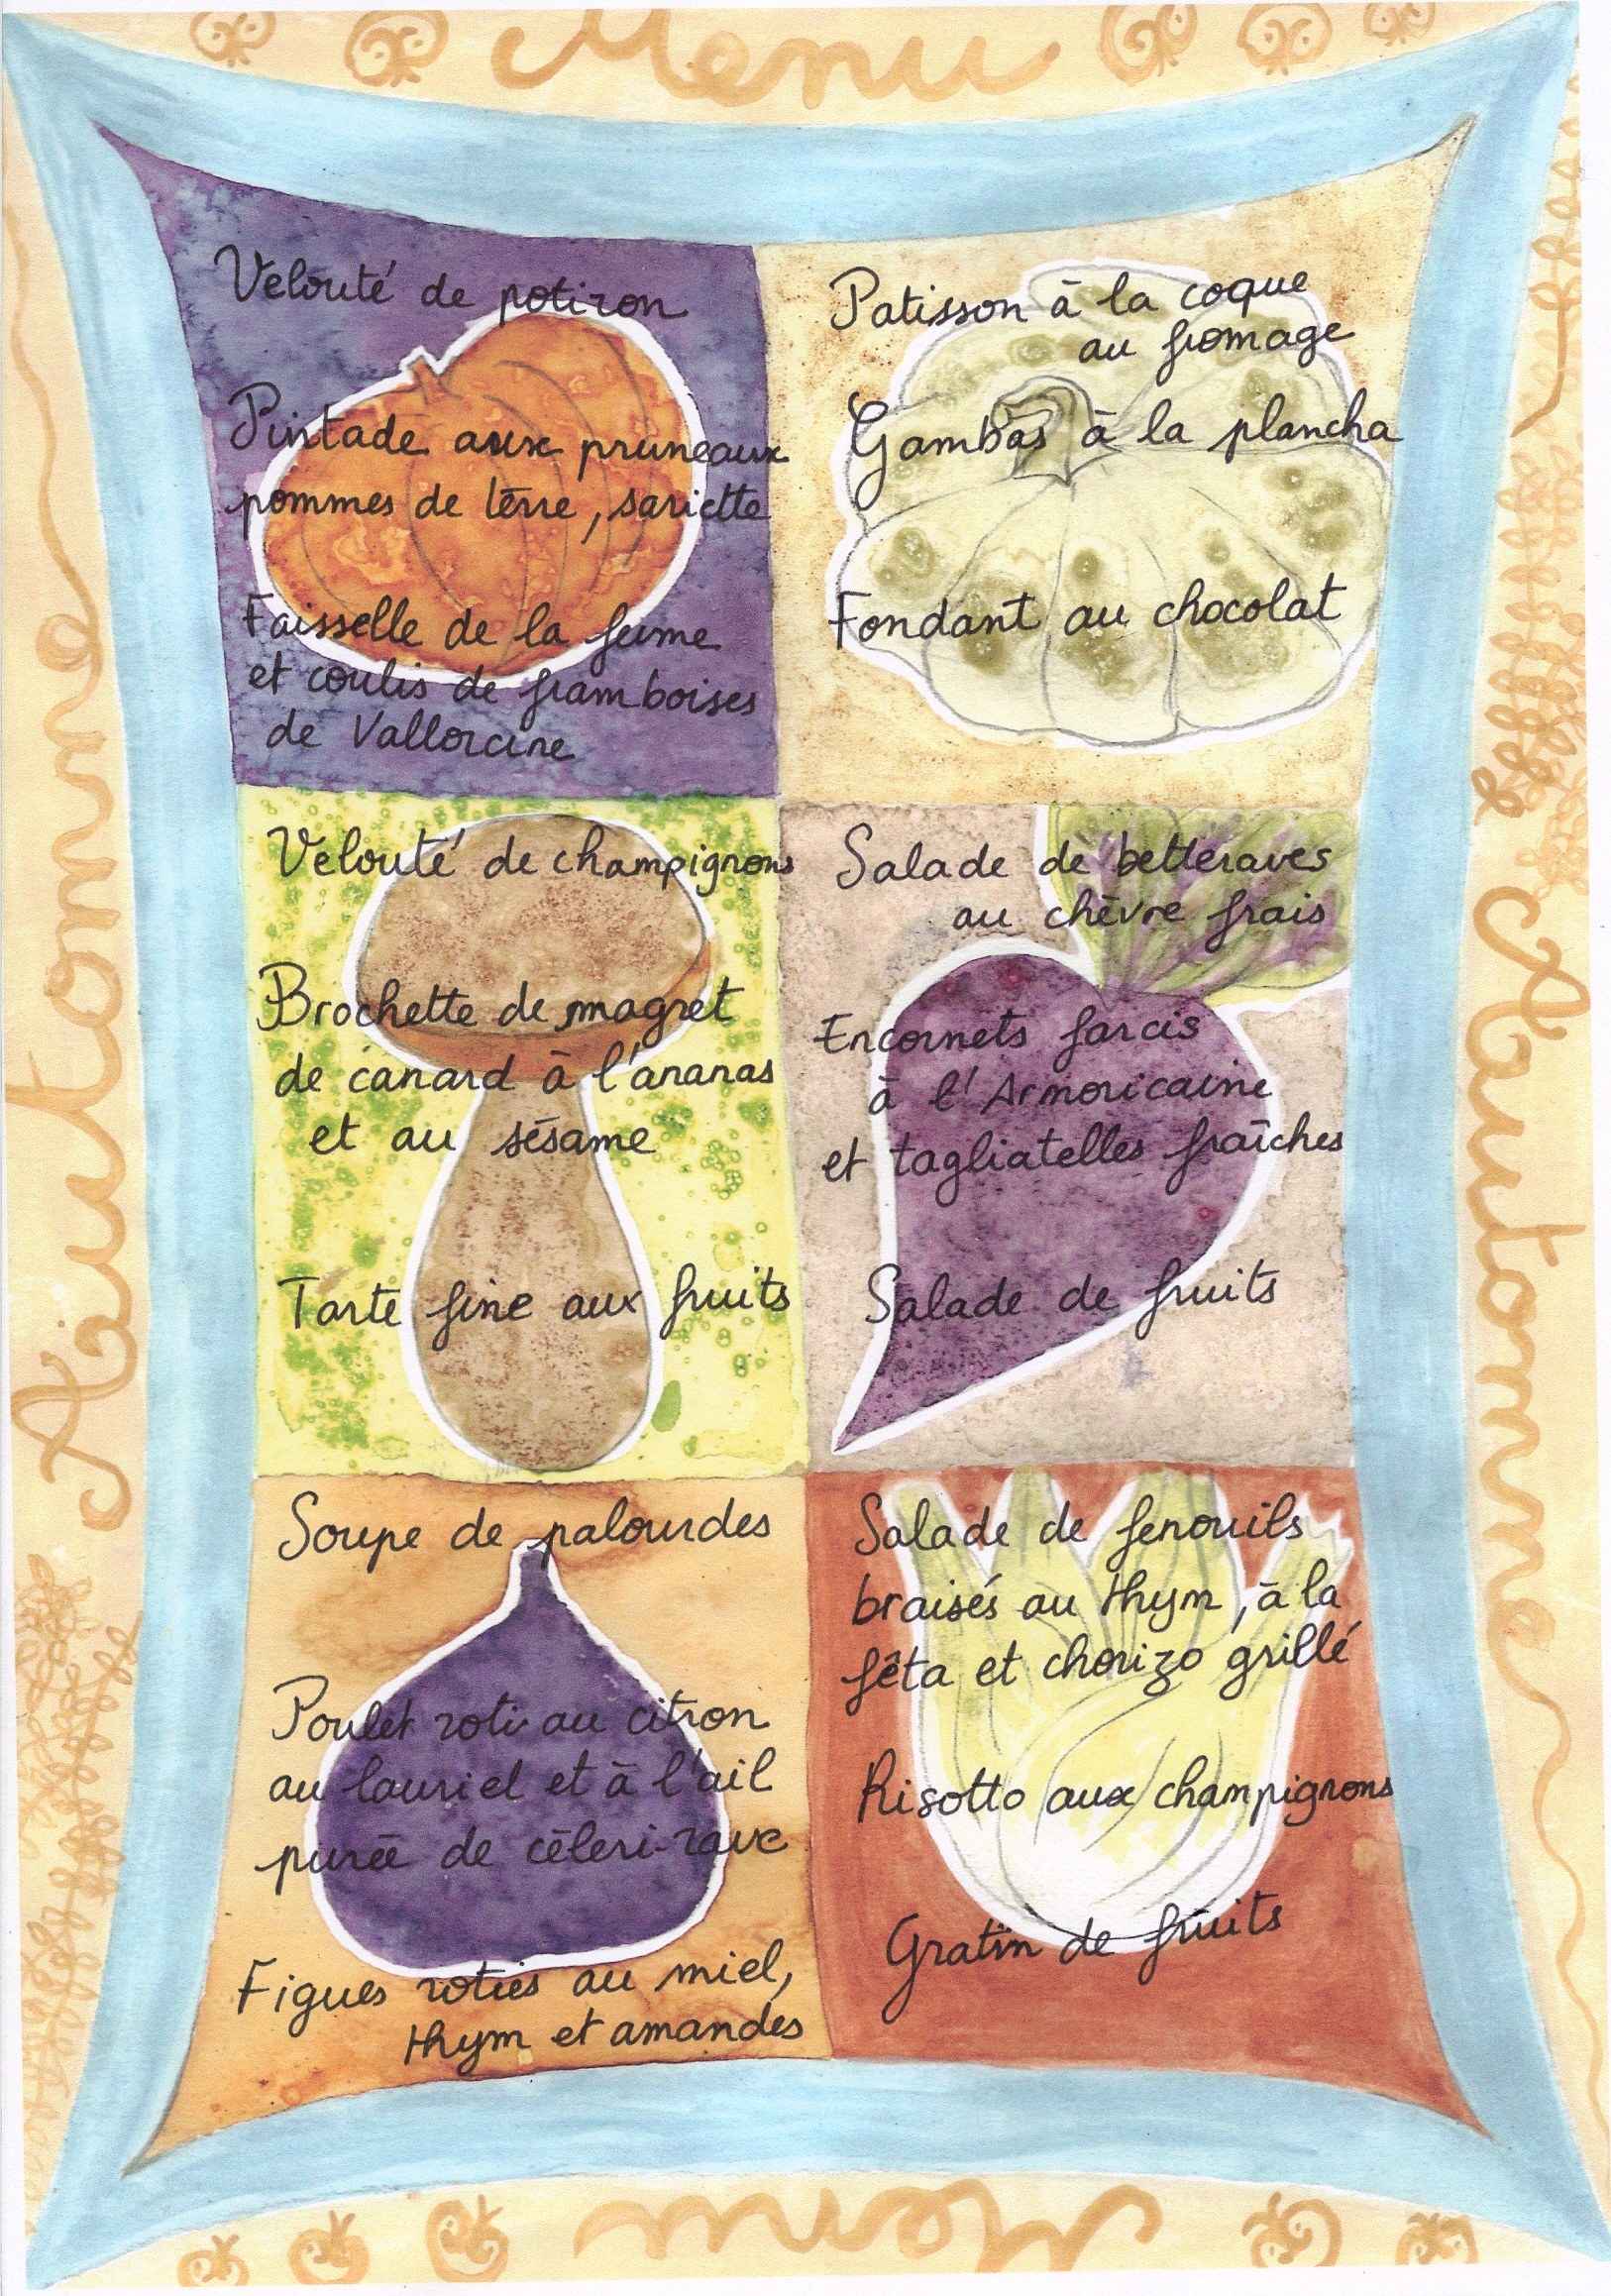 Menu
Automne
Velouté de potiron
Pintade aux pruneaux
pommes de terre, sariette
Faisselle de la ferme
et coulis de framboises
de Vallorcine
Patisson à la coque
au fromage
Gambas à la plancha
Fondant au chocolat
Velouté de champignons
Brochette de magret
de canard à l'ananas
et au sésame
Tarte fine aux fruits
Salade de betteraves
au chèvre frais
Encornets farcis
à l'Armoricaine
et tagliatelles fraîches
Salade de fruits
Soupe de palourdes
Poulet roti au citron
au lauriel et à l'ail
purée de céleri-rave
Figues roties au miel,
thym et amandes
Salade de fenouils
braisés au thym, à la
fêta et chorizo grillé
Risotto aux champignons
Gratin de fruits
Automne
Menu